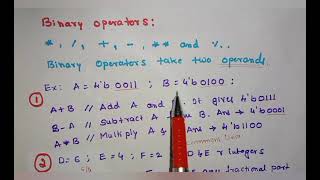 Binary operators:
*, /, +, -, ** and %.
Binary Operators take two operands.
Ex: A = 4'b 0011 ; B = 4'b0100 ;
①
A + B // Add A and . It gives 4'b0111
B - A // Subtract A B. Ans → 4'b0001
A * B // Multiply A & Ans → 4'b1100
② D = 6 ; E = 4 ; F = 2 D & E r integers
any fractional part